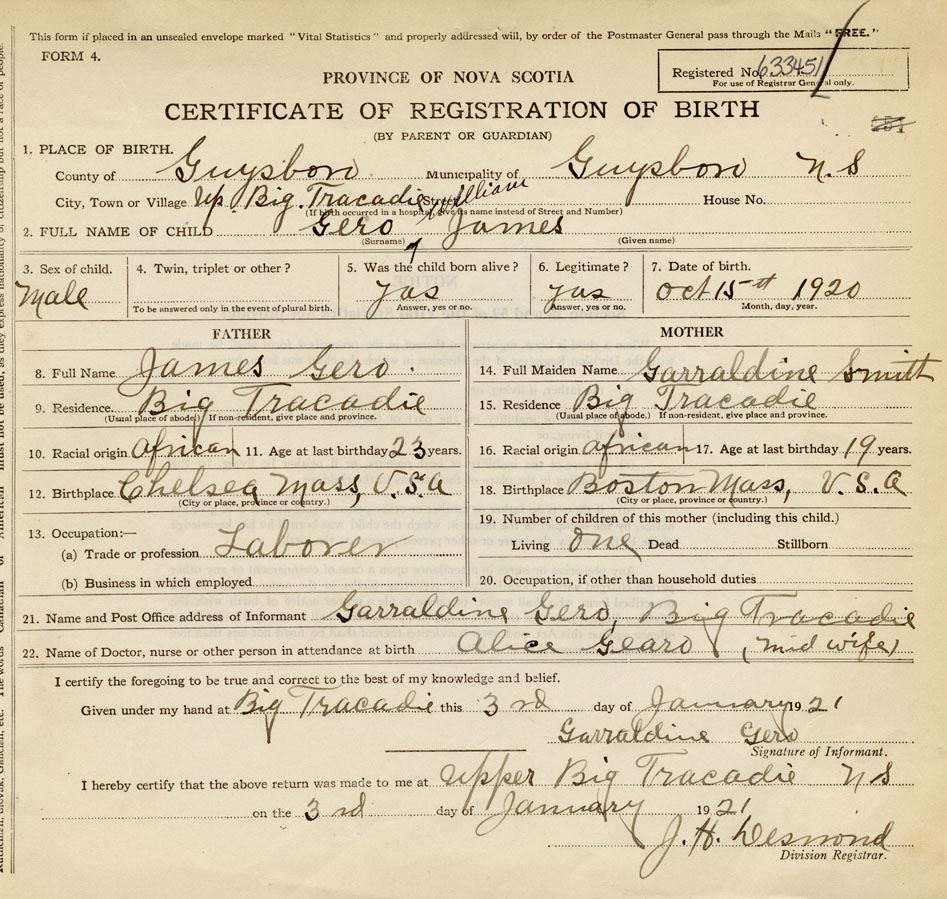 This form if placed in an unsealed envelope marked "Vital Statistics" and properly addressed will, by order of the Postmaster General pass through the Mails "FREE."
FORM 4.
PROVINCE OF NOVA SCOTIA
Registered No. 633451
For use of Registrar General only.
CERTIFICATE OF REGISTRATION OF BIRTH
(BY PARENT OR GUARDIAN)
1. PLACE OF BIRTH.
County of Guysboro Municipality of Guysboro N.S
City, Town or Village Up. Big. Tracadie Street House No.
William
(If birth occurred in a hospital, give its name instead of Street and Number)
2. FULL NAME OF CHILD Gero James
(Surname) (Given name)
3. Sex of child. 4. Twin, triplet or other? 5. Was the child born alive? 6. Legitimate? 7. Date of birth.
Male yas yas Oct 15th 1920
To be answered only in the event of plural birth. Answer, yes or no. Answer, yes or no. Month, day, year.
FATHER MOTHER
8. Full Name James Gero. 14. Full Maiden Name Garraldine Smith
9. Residence. Big Tracadie 15. Residence Big Tracadie
(Usual place of abode.) If non-resident, give place and province. (Usual place of abode.) If non-resident, give place and province.
10. Racial origin African 11. Age at last birthday 23 years. 16. Racial origin African 17. Age at last birthday 19 years.
12. Birthplace Chelsea Mass, U.S.A 18. Birthplace Boston Mass, U.S.A
(City or place, province or country.) (City or place, province or country.)
13. Occupation:— 19. Number of children of this mother (including this child.)
(a) Trade or profession Laborer Living One Dead Stillborn
(b) Business in which employed 20. Occupation, if other than household duties
21. Name and Post Office address of Informant Garraldine Gero, Big Tracadie
22. Name of Doctor, nurse or other person in attendance at birth Alice Gearo (mid wife)
I certify the foregoing to be true and correct to the best of my knowledge and belief.
Given under my hand at Big Tracadie this 3rd day of January 1921
Garraldine Gero
Signature of Informant.
I hereby certify that the above return was made to me at Upper Big Tracadie N S
on the 3rd day of January 1921
J. H. Desmond
Division Registrar.